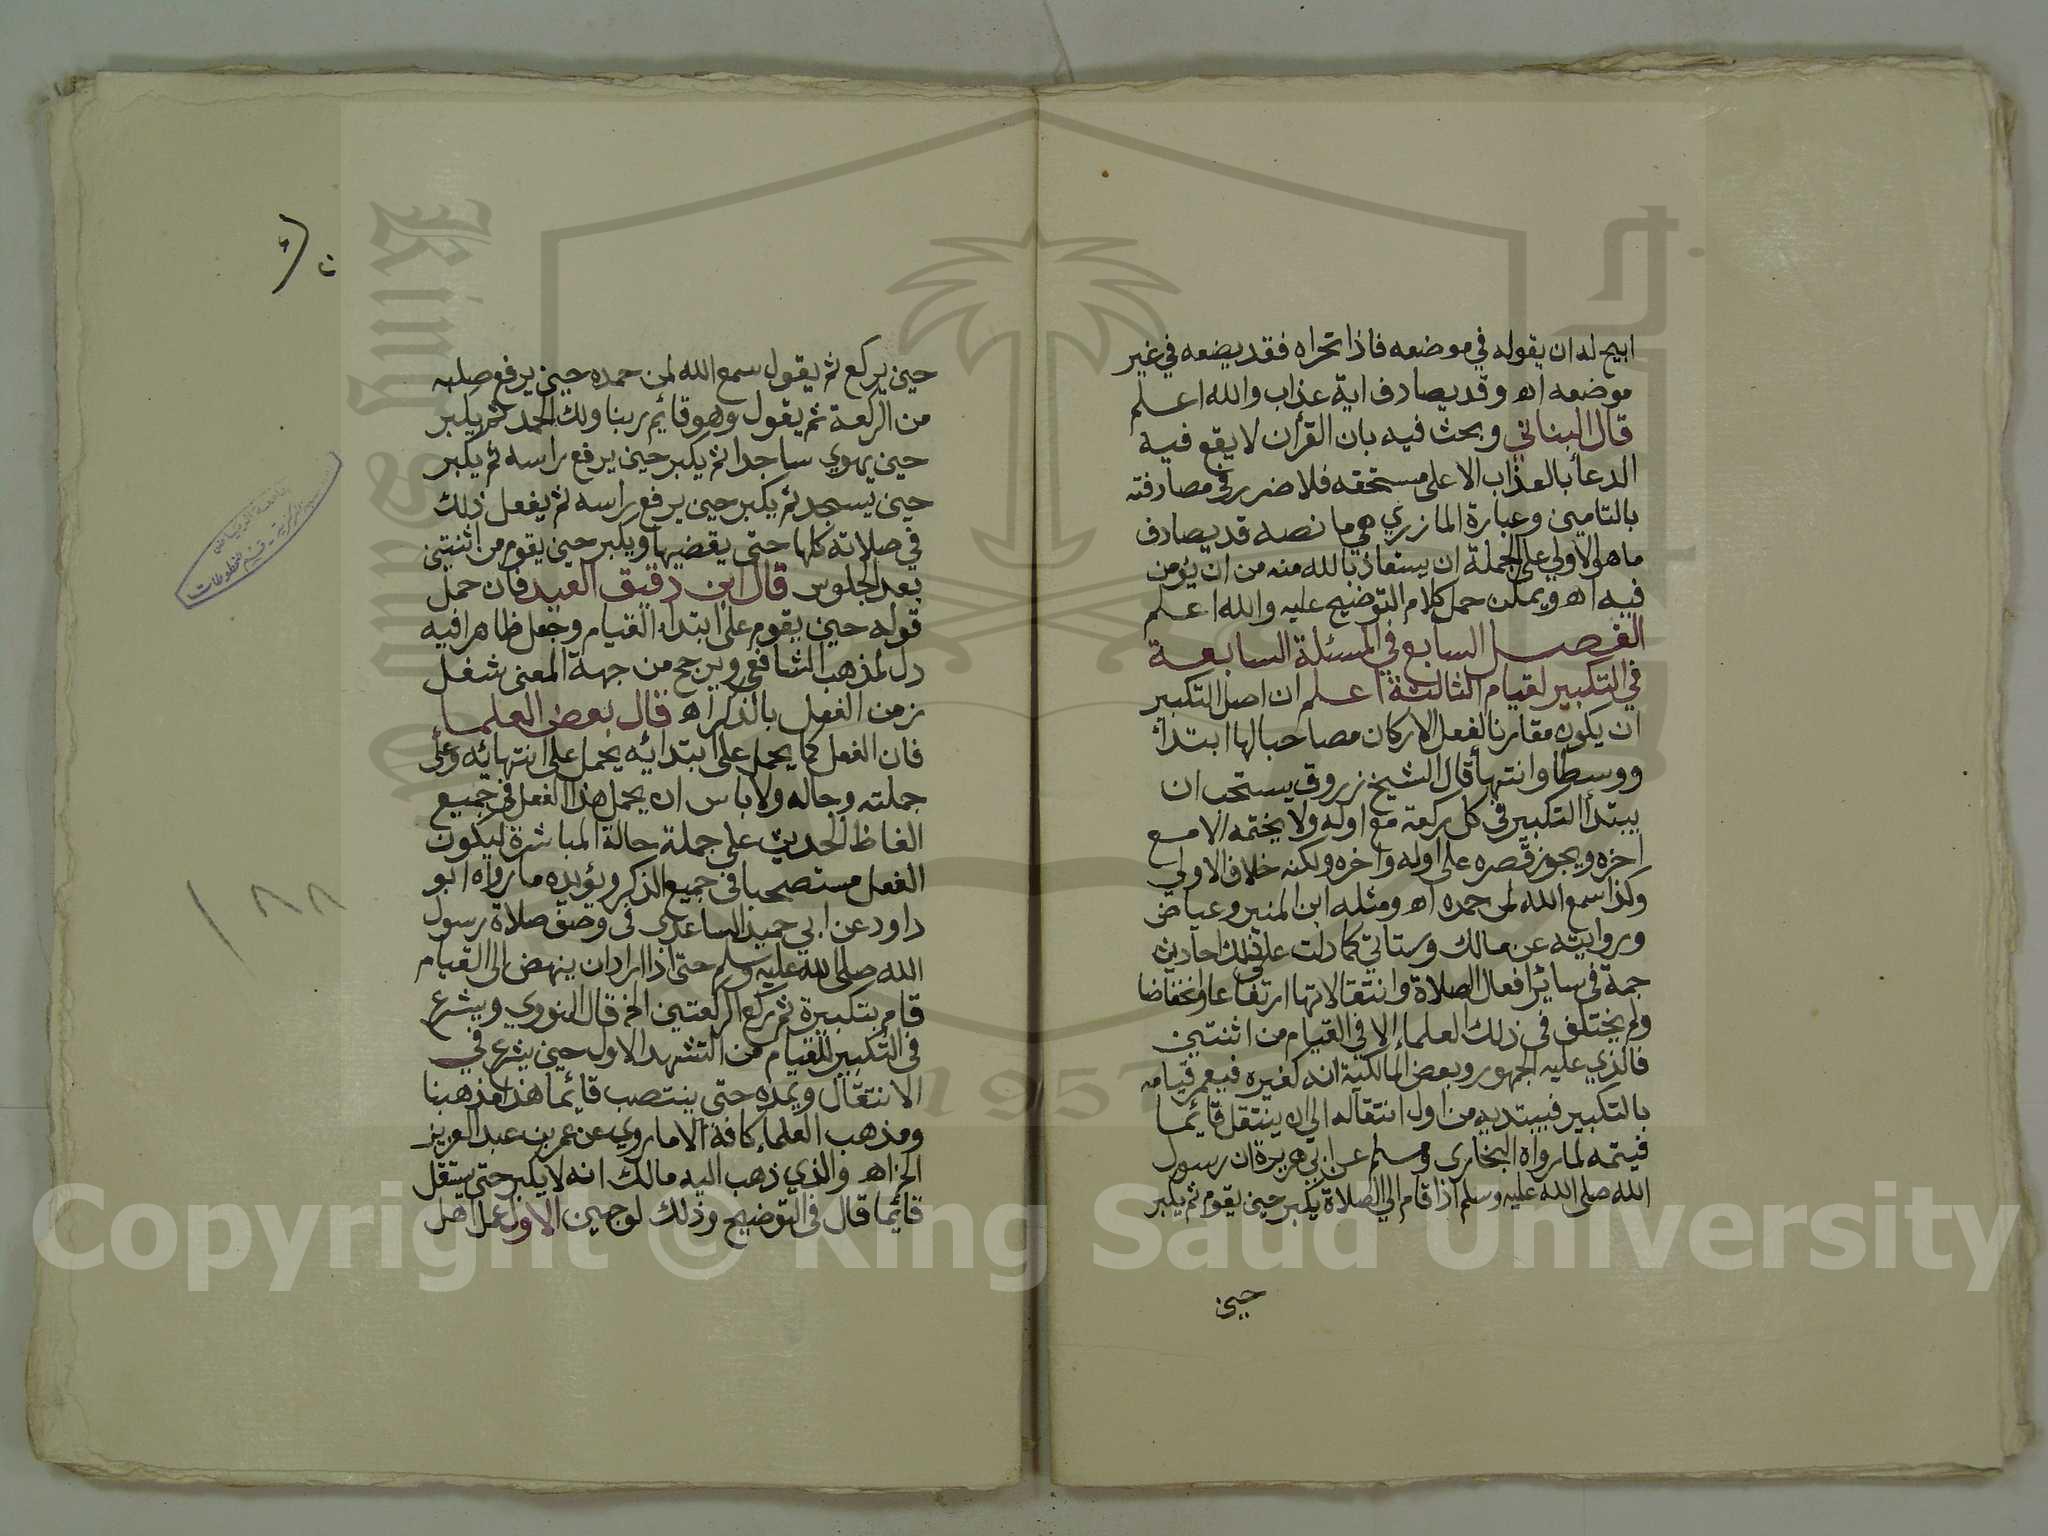 ابيح له ان يقوله في موضعه فاذا تحراه فقد يضعه في غير
موضعه اه وقد يصادف اية عذاب والله اعلم
قال البناني وبحث فيه بان القرأن لا يقع فيه
الدعأ بالعذاب الا على مستحقه فلا ضرر في مصادفته
بالتامين وعبارة المازري هي ما نصه قد يصادف
ما هو الاولي على الجملة ان يستعاذ بالله منه من ان يؤمن
فيه اه ويمكن حمل كلام التوضيح عليه والله اعلم
الفصل السابع في المسئلة السابعة
في التكبير لقيام الثالثة اعلم ان اصل التكبير
ان يكون مقارنا لفعل الاركان مصاحبا لها ابتدأ
ووسطا وانتهأ قال الشيخ زروق يستحب ان
يبتدأ التكبير في كل ركعة مع اوله ولا يختمه الا مع
اخره ويجوز قصره على اوله واخره ولكنه خلاف الاولي
وكذا سمع الله لمن حمده اه ومثله ابن المنير وعياض
وروايته عن مالك وستاتي كما دلت على ذلك احاديث
جمة في سائر افعال الصلاة وانتقالاتها ارتفاعا وانخفاضا
ولم يختلف في ذلك العلماء الا في القيام من اثنتين
فالذي عليه الجمهور وبعض المالكية انه كغيره فيعم قيامه
بالتكبير فيبتديه من اول انتقاله الي ان ينتقل قائما
فيتمه لما رواه البخاري ومسلم عن ابي هريرة ان رسول
الله صلى الله عليه وسلم اذا قام الي الصلاة يكبر حين يقوم ثم يكبر
حين
حين يركع ثم يقول سمع الله لمن حمده حين يرفع صلبه
من الركعة ثم يقول وهو قائم ربنا ولك الحمد ثم يكبر
حين يهوي ساجدا ثم يكبر حين يرفع راسه ثم يكبر
حين يسجد ثم يكبر حين يرفع راسه ثم يفعل ذلك
في صلاته كلها حتى يقضيها ويكبر حين يقوم من اثنتين
بعد الجلوس قال ابن دقيق العيد فان حمل
قوله حين يقوم على ابتداء القيام وجعل ظاهرا فيه
دل لمذهب الشافعي ويرجح من جهة المعنى شغل
زمن الفعل بالذكر اه قال بعض العلما
فان الفعل كما يحمل على ابتدائه يحمل على انتهائه وعلى
جملته وحاله ولا باس ان يحمل هذا الفعل في جميع
الفاظ الحديث على جملة حالة المباشرة ليكون
الفعل مستصحبا في جميع الذكر ويؤيده ما رواه ابو
داود عن ابي حميد الساعدي في وصف صلاة رسول
الله صلى الله عليه وسلم حتى اذا اراد ان ينهض الى القيام
قام بتكبيرة ثم ركع الركعتين الخ قال النووي ويشرع
في التكبير للقيام من التشهد الاول حين يشرع في
الانتقال ويمده حتى ينتصب قائما هذا مذهبنا
ومذهب العلماء كافة الا ما روي عن عمر بن عبد العزيز
الخ اه والذي ذهب اليه مالك انه لا يكبر حتى يستقل
قائما قال في التوضيح وذلك لوجهين الاول عمل اهل
Copyright © King Saud University
1957